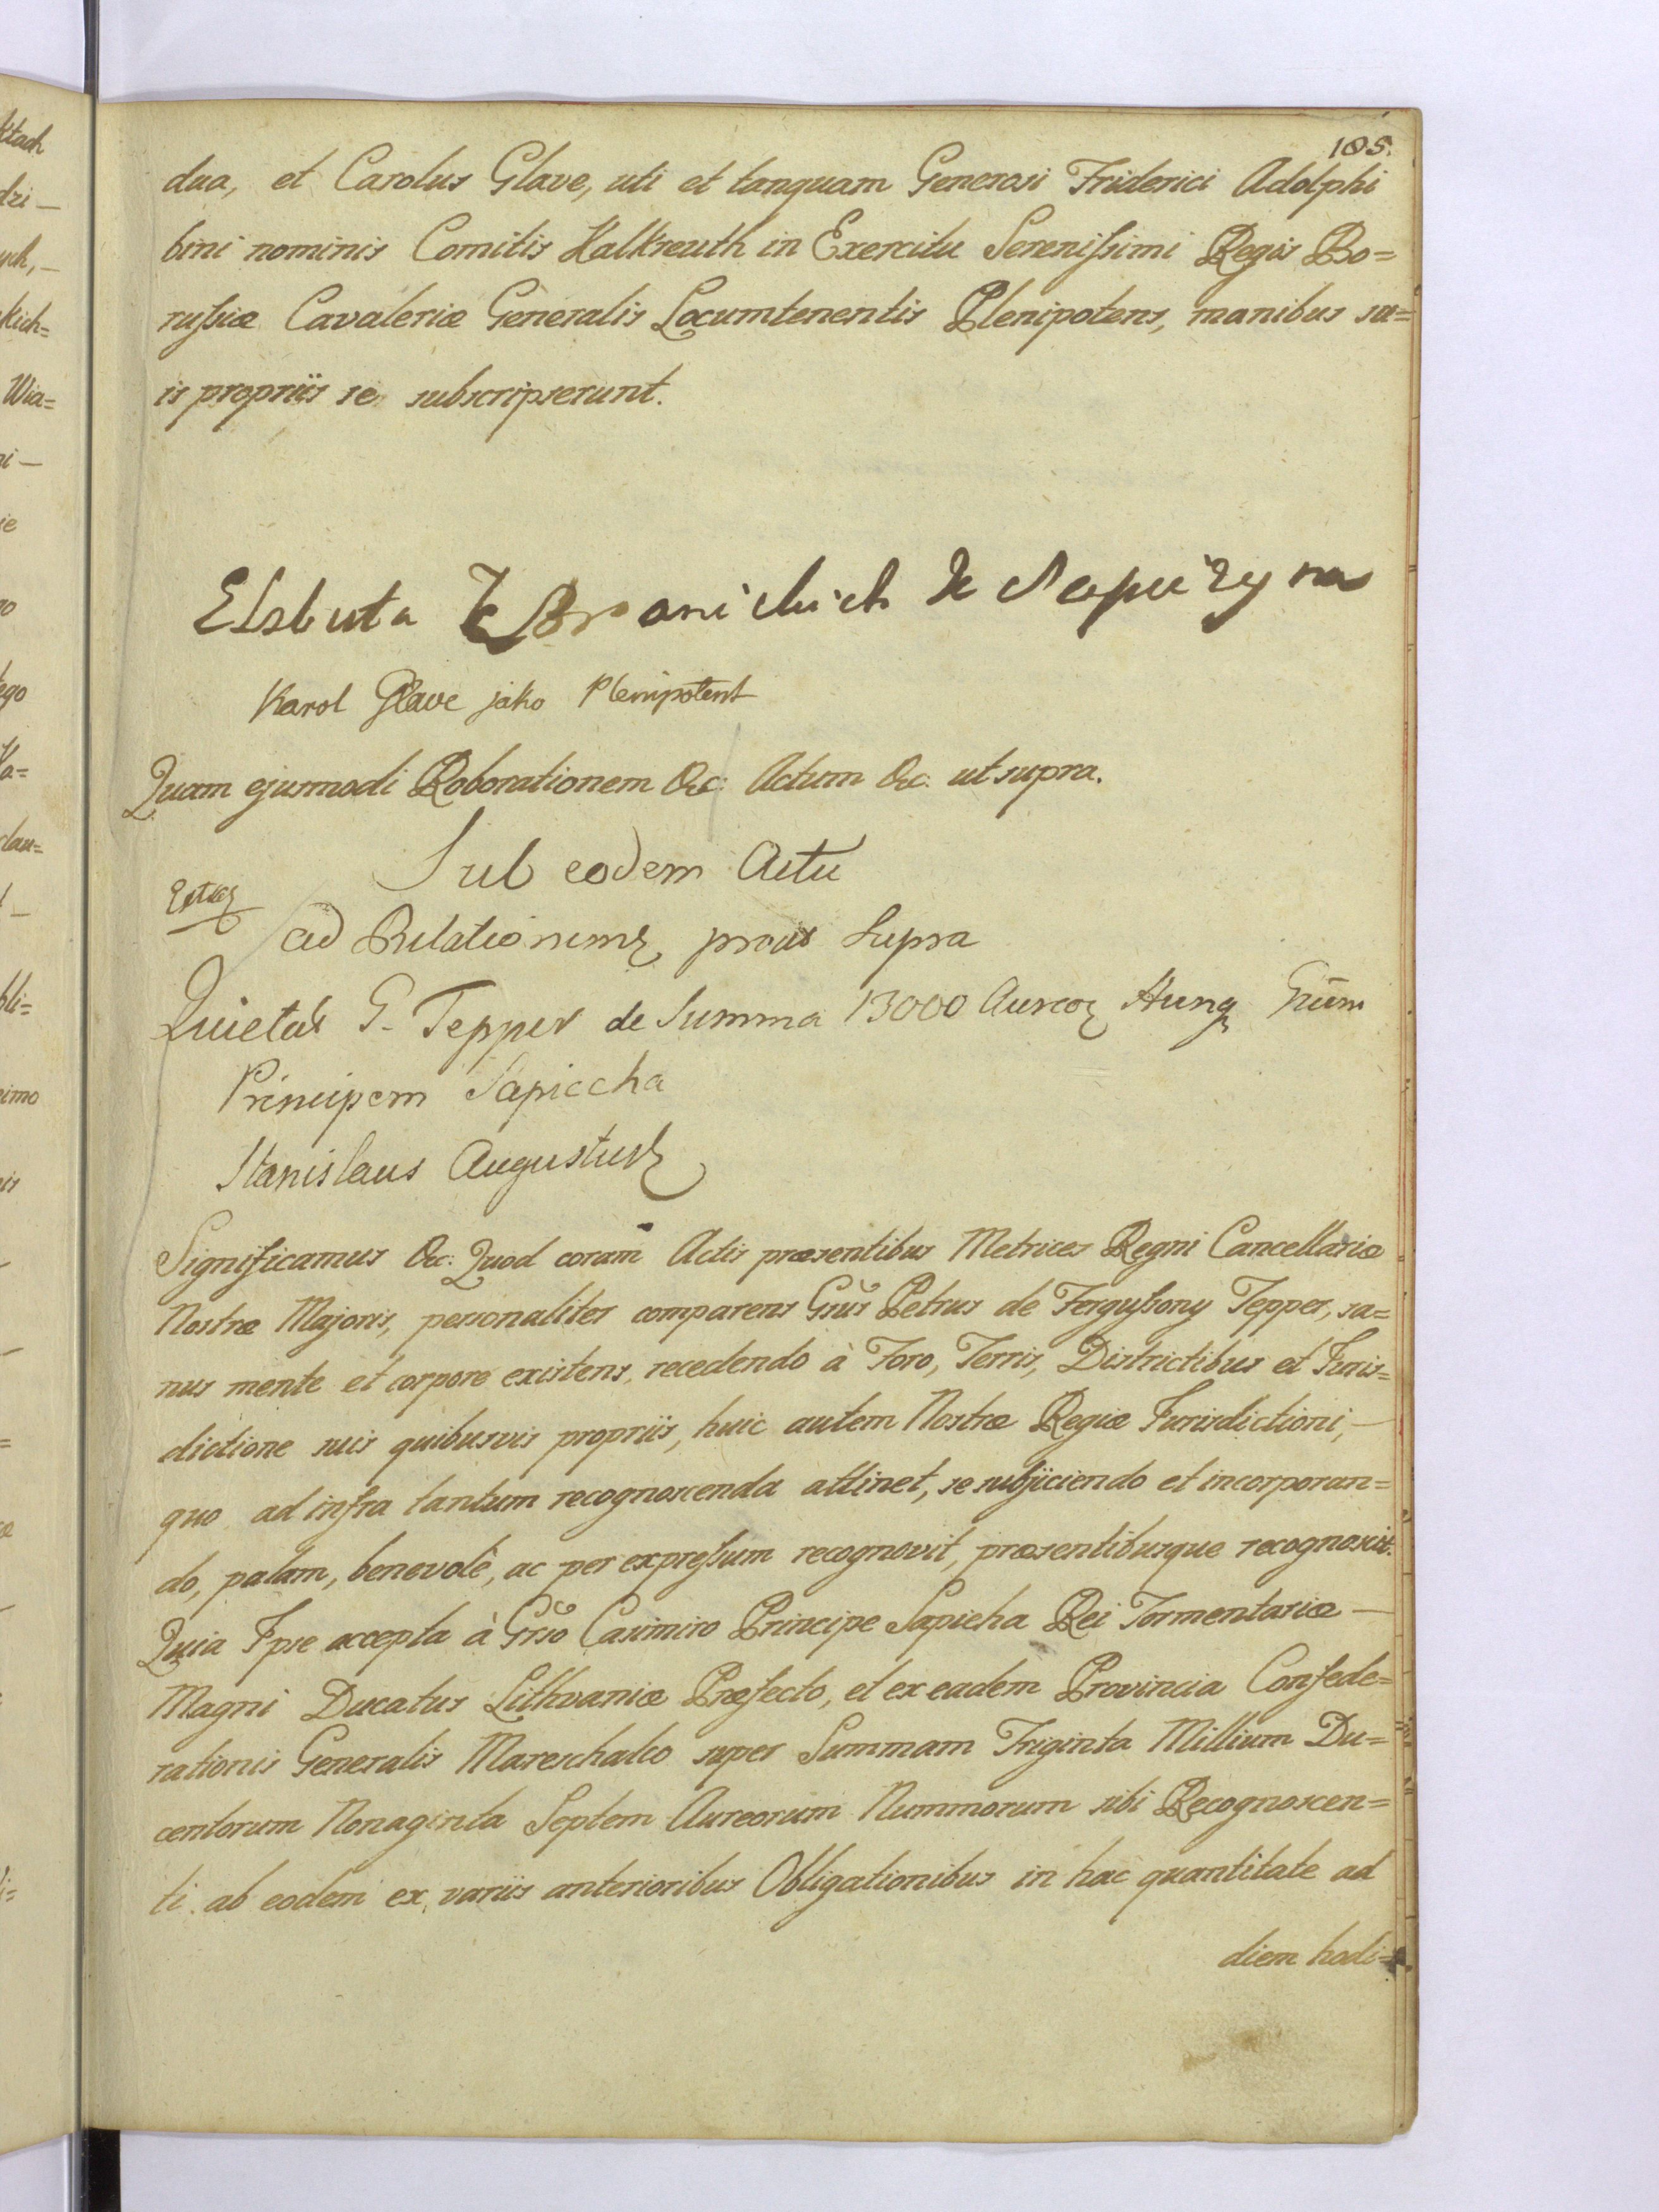 105.
dua, et Carolus Glave, uti et tanquam Generosi Friderici Adolphi
bini nominis Comitis Kalkreuth in Exercitu Serenissimi Regis Bo=
russiæ Cavaleriæ Generalis Locumtenentis Plenipotens, manibus su=
is propriis se subscripserunt.
Elsbieta z Branickich X Sapiezyna
Karol Glave jako Plenipotent
Quam ejusmodi Roborationem &c: Actum &c. ut supra.
Sub eodem Actu
ad Relationem prout Supra
Quietat G. Tepper de Summa 13000 Aureor Hung Grūm
Principem Sapiecha
Stanislaus Augustus
Significamus &c: Quod coram Actis præsentibus Metrices Regni Cancellariæ
Nostræ Majoris, personaliter comparens Grūs Petrus de Fergussony Tepper, sa=
nus mente et corpore existens, recedendo à Foro, Terris, Districtibus et Juris=
dictione suis quibusvis propriis, huic autem Nostræ Regiæ Jurisdictioni, —
quo ad infra tantum recognoscenda attinet, se subjiciendo et incorporan=
do, palam, benevolè, ac per expressum recognovit, præsentibusque recognoscit.
Quia Ipse accepta à Grso Casimiro Principe Sapieha Rei Tormentariæ —
Magni Ducatus Lithvaniæ Præfecto, et ex eadem Provincia Confede=
rationis Generalis Mareschalco super Summam Triginta Millium Du=
centorum Nonaginta Septem Aureorum Nummorum sibi Recognoscen=
ti ab eodem ex variis anterioribus Obligationibus in hac quantitate ad
diem hodi=